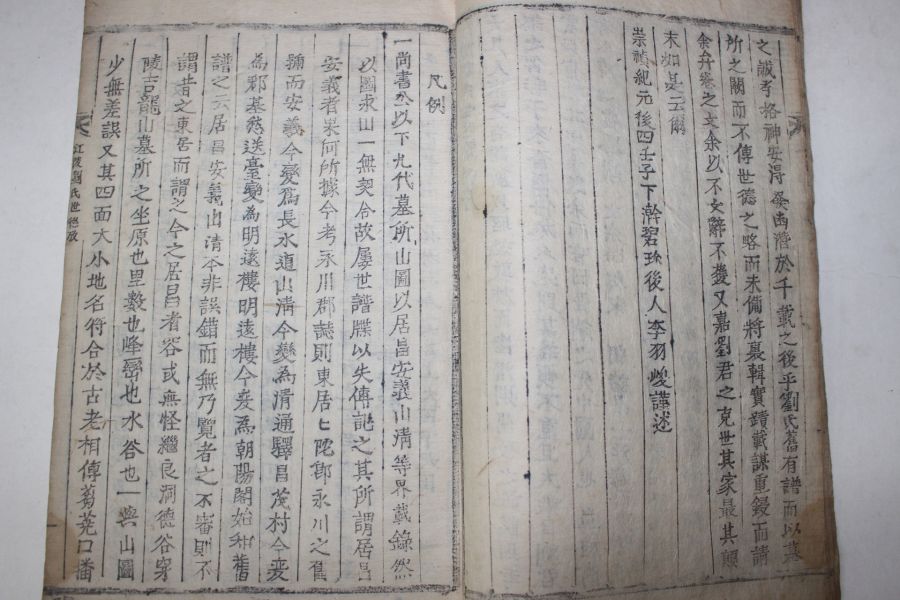 之誠孝格神安得發幽潛於千載之後乎劉氏舊有譜而以墓
所之闕而不傳世德之略而未備將裒輯實蹟載謀重鋟而請
余弁卷之文余以不文辭不獲又嘉劉君之克世其家最其顛
末如是云爾
崇禎紀元後四壬子下澣碧珍後人李羽峻謹述
凡例
一尚書公以下九代墓所山圖以居昌安義山淸等界載錄然
以圖求山一無契合故屢世譜牒以失傳記之其所謂居昌
安義者果何所據今考永川郡誌則東居七陁鄕永川之舊
號而安義今變爲長水道山淸今變爲淸通驛昌茂村今變
爲郡基愁送臺變爲明遠樓明遠樓今變爲朝陽閣始知舊
譜之云居昌安義山淸本非誤錯而無乃覽者之不審則不
謂昔之東居而謂之今之居昌者容或無怪繼良洞德谷穿
陵吉龍山墓所之坐原也里數也峰巒也水谷也一與山圖
少無差誤又其四面大小地名符合於古老相傳蒭蕘口播
江陵劉氏世譜